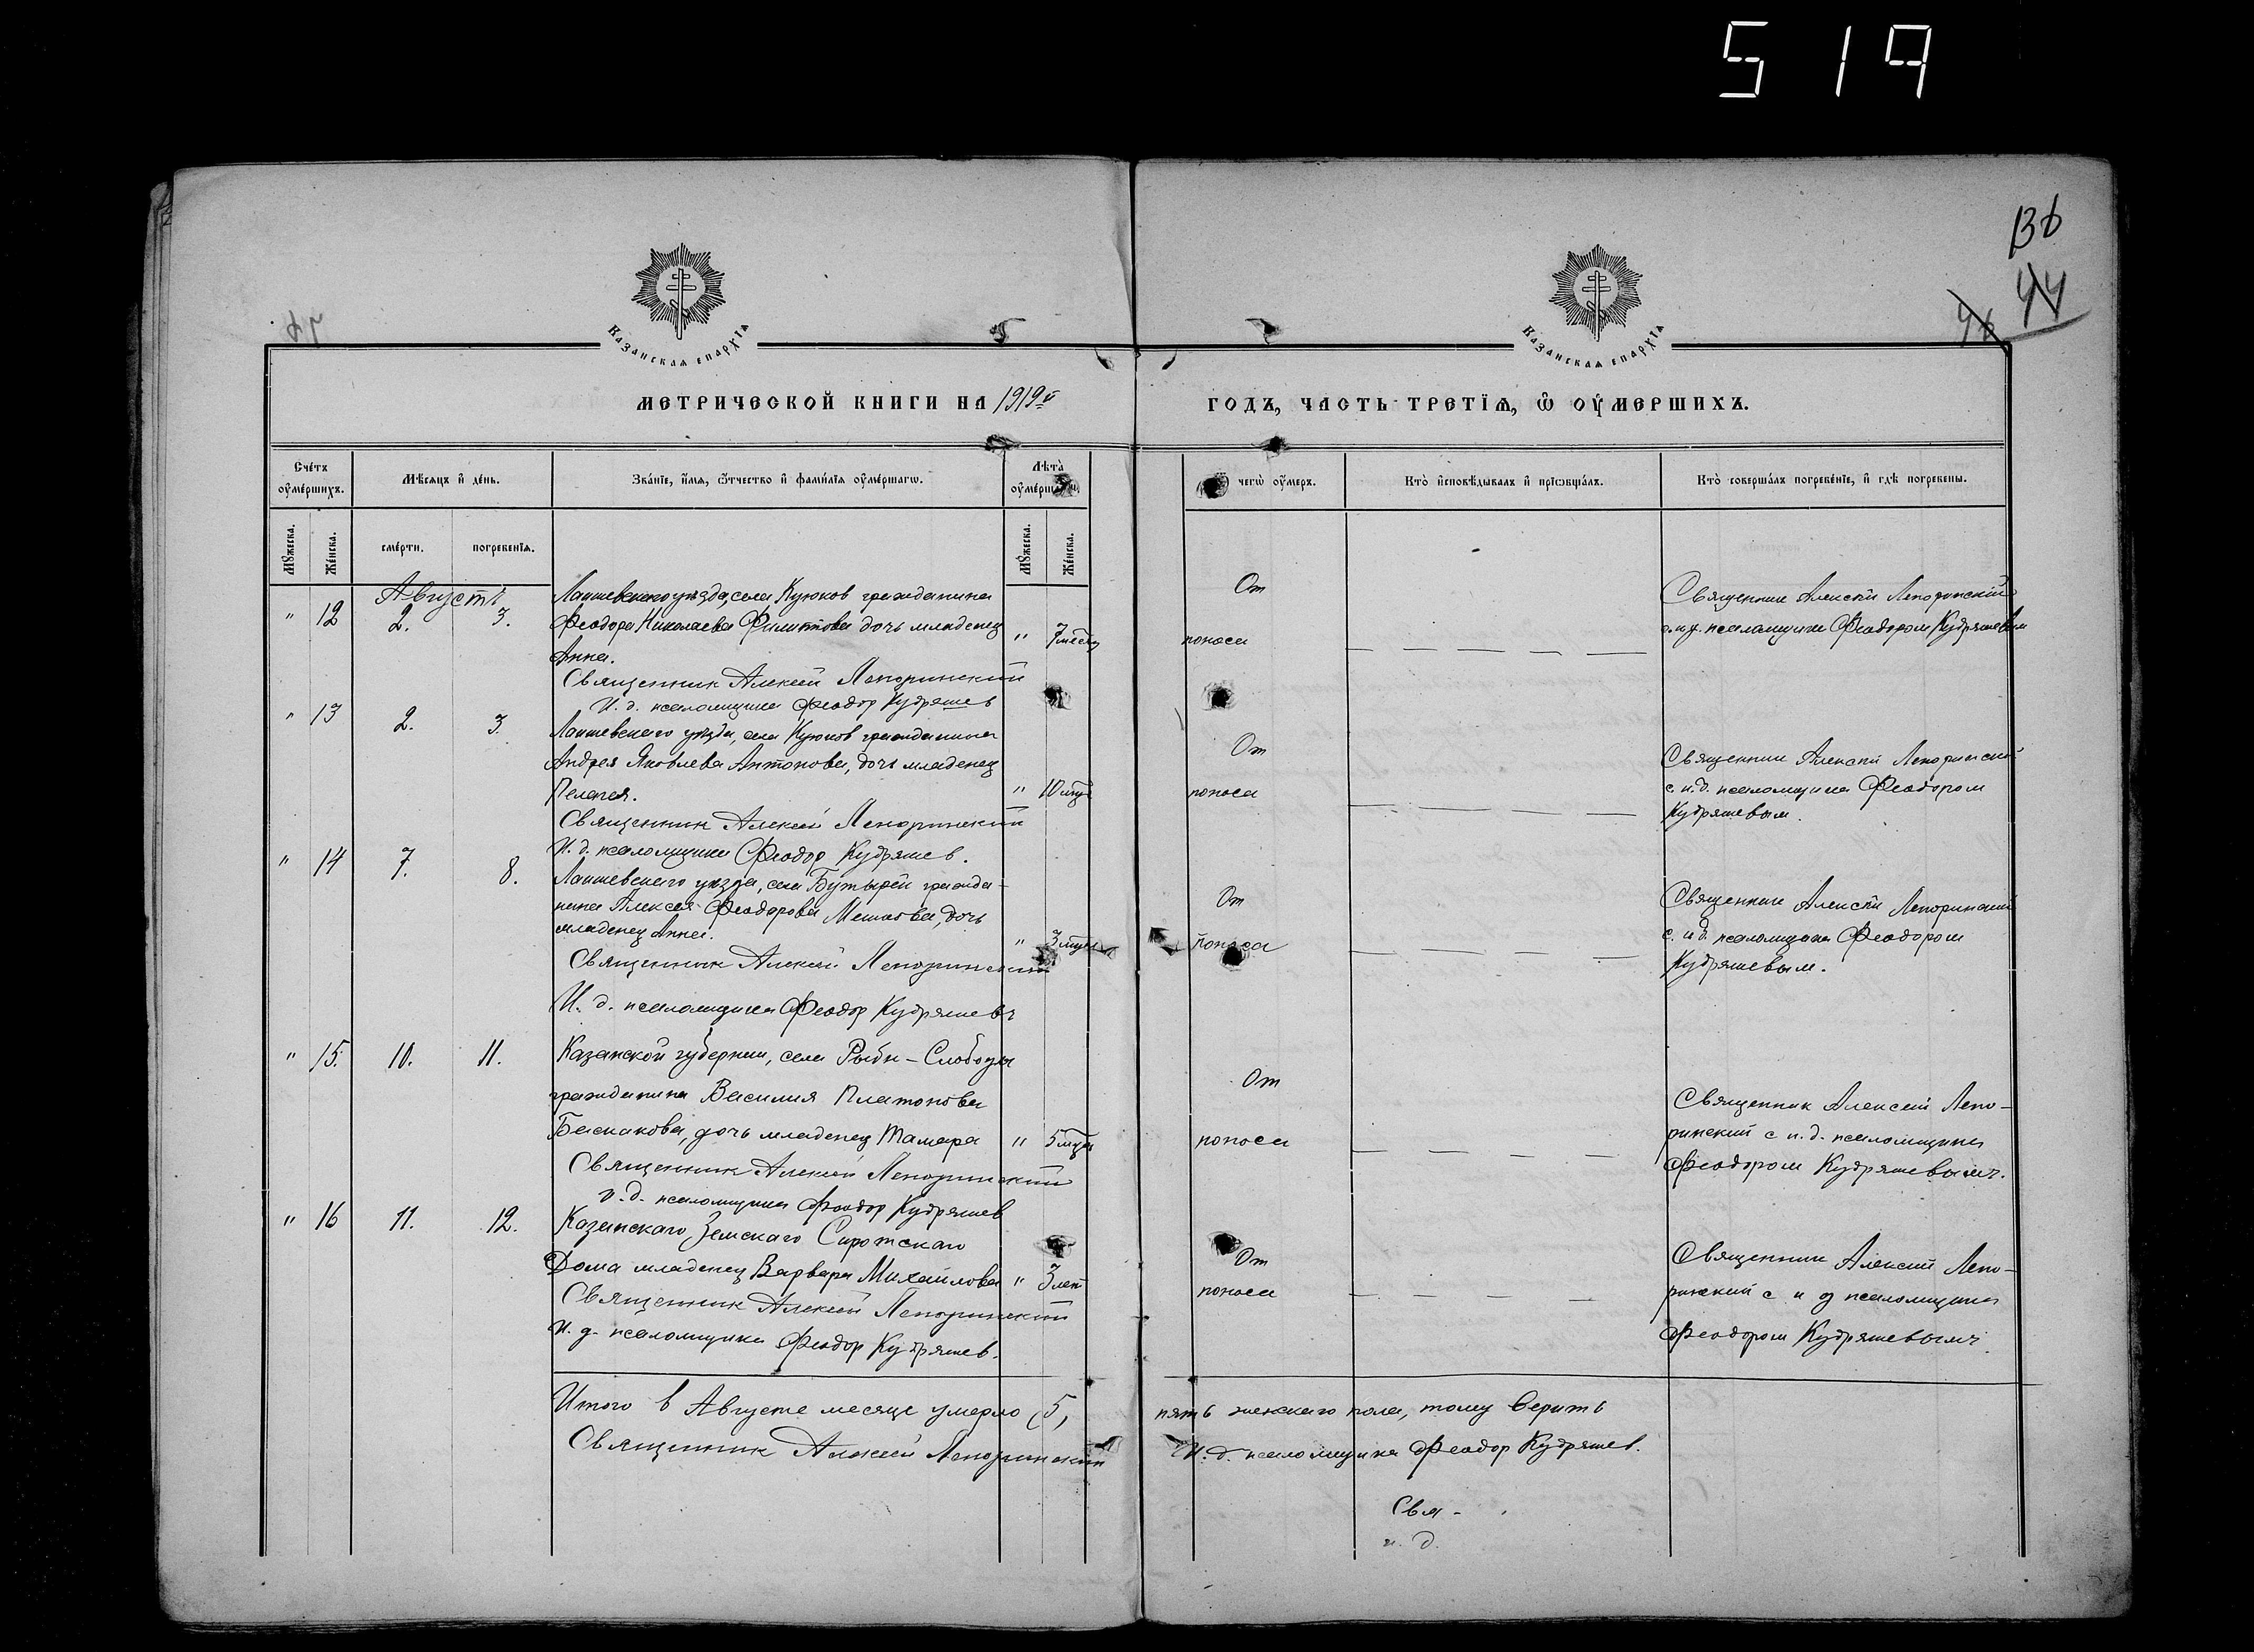 519
136
44
46
Казанская епархїя
Казанская епархїя
Метрической книги на 1919й годъ, часть третїя, ѡ оумершихъ.
Счетъ оумершихъ.
Мѣсяцъ и день.
Званїе, имя, ѿчество и фамилїя оумершагѡ.
Лѣта оумершагѡ.
чегѡ оумеръ.
Кто исповѣдывалъ и прїѡбщалъ.
Кто совершалъ погребенїе, и гдѣ погребены.
Мꙋжеска.
Женска.
смерти.
погребенїя.
Мꙋжеска.
Женска.
Августъ
" 12 2. 3.
Лаишевского уезда, села Куюков гражданина
Феодора Николаева Филиппова дочь младенец
Анна.
" 7 месяц
От
поноса
Священник Алексей Лепоринский
с и.д. псаломщика Феодором Кудряшевым
Священник Алексей Лепоринский
И. д. псаломщика Феодор Кудряшев
" 13 2. 3.
Лаишевского уезда, села Куюков гражданина
Андрея Яковлева Антонова, дочь младенец
Пелагея.
" 10 мцев
От
поноса
Священник Алексей Лепоринский
с и.д. псаломщика Феодором
Кудряшевым.
Священник Алексей Лепоринский
И. д. псаломщика Феодор Кудряшев.
" 14 7. 8.
Лаишевского уезда, села Бутырей гражда-
нина Алексея Феодорова Мешкова, дочь
младенец Анна.
" 3 мцев
От
поноса
Священник Алексей Лепоринский
с. и д. псаломщика Феодором
Кудряшевым.
Священник Алексей Лепоринский
И. д. псаломщика Феодор Кудряшевъ
" 15. 10. 11.
Казанской губернии, села Рыбн-Слободы
гражданина Василия Платонова
Баскакова, дочь младенец Тамара
" 5 мцев
От
поноса
Священник Алексей Лепо-
ринский с и. д. псаломщика
Феодором Кудряшевымъ.
Священник Алексей Лепоринский
и. д. псаломщика Феодор Кудряшев
" 16 11. 12.
Казанскаго Земскаго Сиротскаго
Дома младенец Варвара Михайлова
" 3 лет
От
поноса
Священник Алексей Лепо-
ринский с и д псаломщика
Феодором Кудряшевымъ.
Священник Алексей Лепоринский
И. д. псаломщика Феодор Кудряшев.
Итого в Августе месяце умерло (5,
пять женскаго пола, тому верить
Священник Алексей Лепоринский
И. д. псаломщика Феодор Кудряшев.
Свя -
и. д.